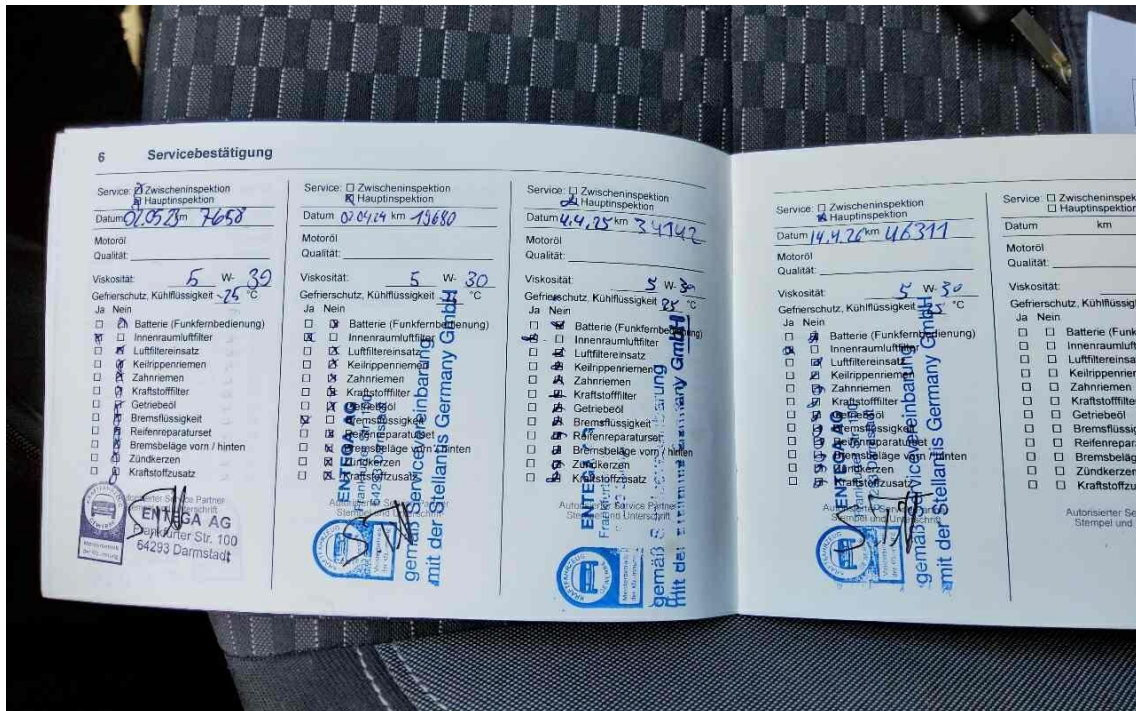 6 Servicebestätigung
Service: Zwischeninspektion
Hauptinspektion
Datum 02.05.23 km 7658
Motoröl
Qualität:
Viskosität: 5 W- 30
Gefrierschutz, Kühlflüssigkeit -25 °C
Ja Nein
Batterie (Funkfernbedienung)
Innenraumluftfilter
Luftfiltereinsatz
Keilrippenriemen
Zahnriemen
Kraftstofffilter
Getriebeöl
Bremsflüssigkeit
Reifenreparaturset
Bremsbeläge vorn / hinten
Zündkerzen
Kraftstoffzusatz
Autorisierter Service Partner
ENTEGA AG
Frankfurter Str. 100
64293 Darmstadt
Service: Zwischeninspektion
Hauptinspektion
Datum 02.04.24 km 19680
Motoröl
Qualität:
Viskosität: 5 W- 30
Gefrierschutz, Kühlflüssigkeit °C
Ja Nein
Batterie (Funkfernbedienung)
Innenraumluftfilter
Luftfiltereinsatz
Keilrippenriemen
Zahnriemen
Kraftstofffilter
Getriebeöl
Bremsflüssigkeit
Reifenreparaturset
Bremsbeläge vorn / hinten
Zündkerzen
Kraftstoffzusatz
Autorisierter Service Partner
Stempel und Unterschrift
ENTEGA AG
Frankfurter Str. 100
64293 Darmstadt
gemäß Servicevereinbarung
mit der Stellantis Germany GmbH
Service: Zwischeninspektion
Hauptinspektion
Datum 4.4.25 km 34142
Motoröl
Qualität:
Viskosität: 5 W- 30
Gefrierschutz, Kühlflüssigkeit 25 °C
Ja Nein
Batterie (Funkfernbedienung)
Innenraumluftfilter
Luftfiltereinsatz
Keilrippenriemen
Zahnriemen
Kraftstofffilter
Getriebeöl
Bremsflüssigkeit
Reifenreparaturset
Bremsbeläge vorn / hinten
Zündkerzen
Kraftstoffzusatz
Autorisierter Service Partner
Stempel und Unterschrift
ENTEGA
gemäß
mit der Germany GmbH
Service: Zwischeninspektion
Hauptinspektion
Datum 14.4.26 km 46311
Motoröl
Qualität:
Viskosität: 5 W- 30
Gefrierschutz, Kühlflüssigkeit °C
Ja Nein
Batterie (Funkfernbedienung)
Innenraumluftfilter
Luftfiltereinsatz
Keilrippenriemen
Zahnriemen
Kraftstofffilter
Getriebeöl
Bremsflüssigkeit
Reifenreparaturset
Bremsbeläge vorn / hinten
Zündkerzen
Kraftstoffzusatz
Autorisierter Service Partner
Stempel und Unterschrift
ENTEGA AG
gemäß Servicevereinbarung
mit der Stellantis Germany GmbH
Service: Zwischeninspek
Hauptinspektion
Datum km
Motoröl
Qualität:
Viskosität:
Gefrierschutz, Kühlflüssig
Ja Nein
Batterie (Funk
Innenraumluft
Luftfiltereinsa
Keilrippenrieme
Zahnriemen
Kraftstofffilte
Getriebeöl
Bremsflüssig
Reifenrepara
Bremsbeläg
Zündkerzen
Kraftstoffzu
Autorisierter Se
Stempel und